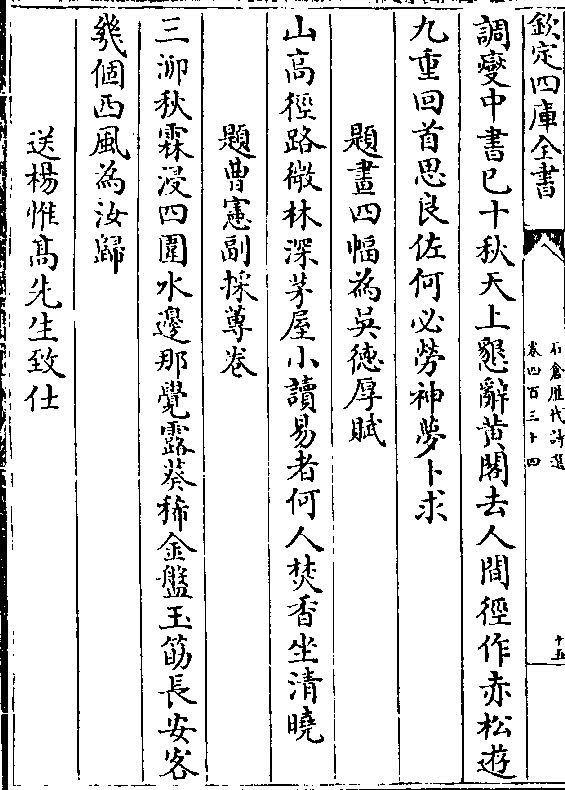 欽定四庫全書
石倉歴代詩選
卷四百三十四
十五
調燮中書已十秋天上懇辭黄閣去人間徑作赤松遊
九重回首思良佐何必勞神夢卜求
題畫四幅為吳徳厚賦
山高徑路微林深茅屋小讀易者何人焚香坐清曉
題曹憲副採蓴卷
三泖秋霖浸四圍水邊那覺露葵稀金盤玉筯長安客
幾個西風為汝歸
送楊惟髙先生致仕